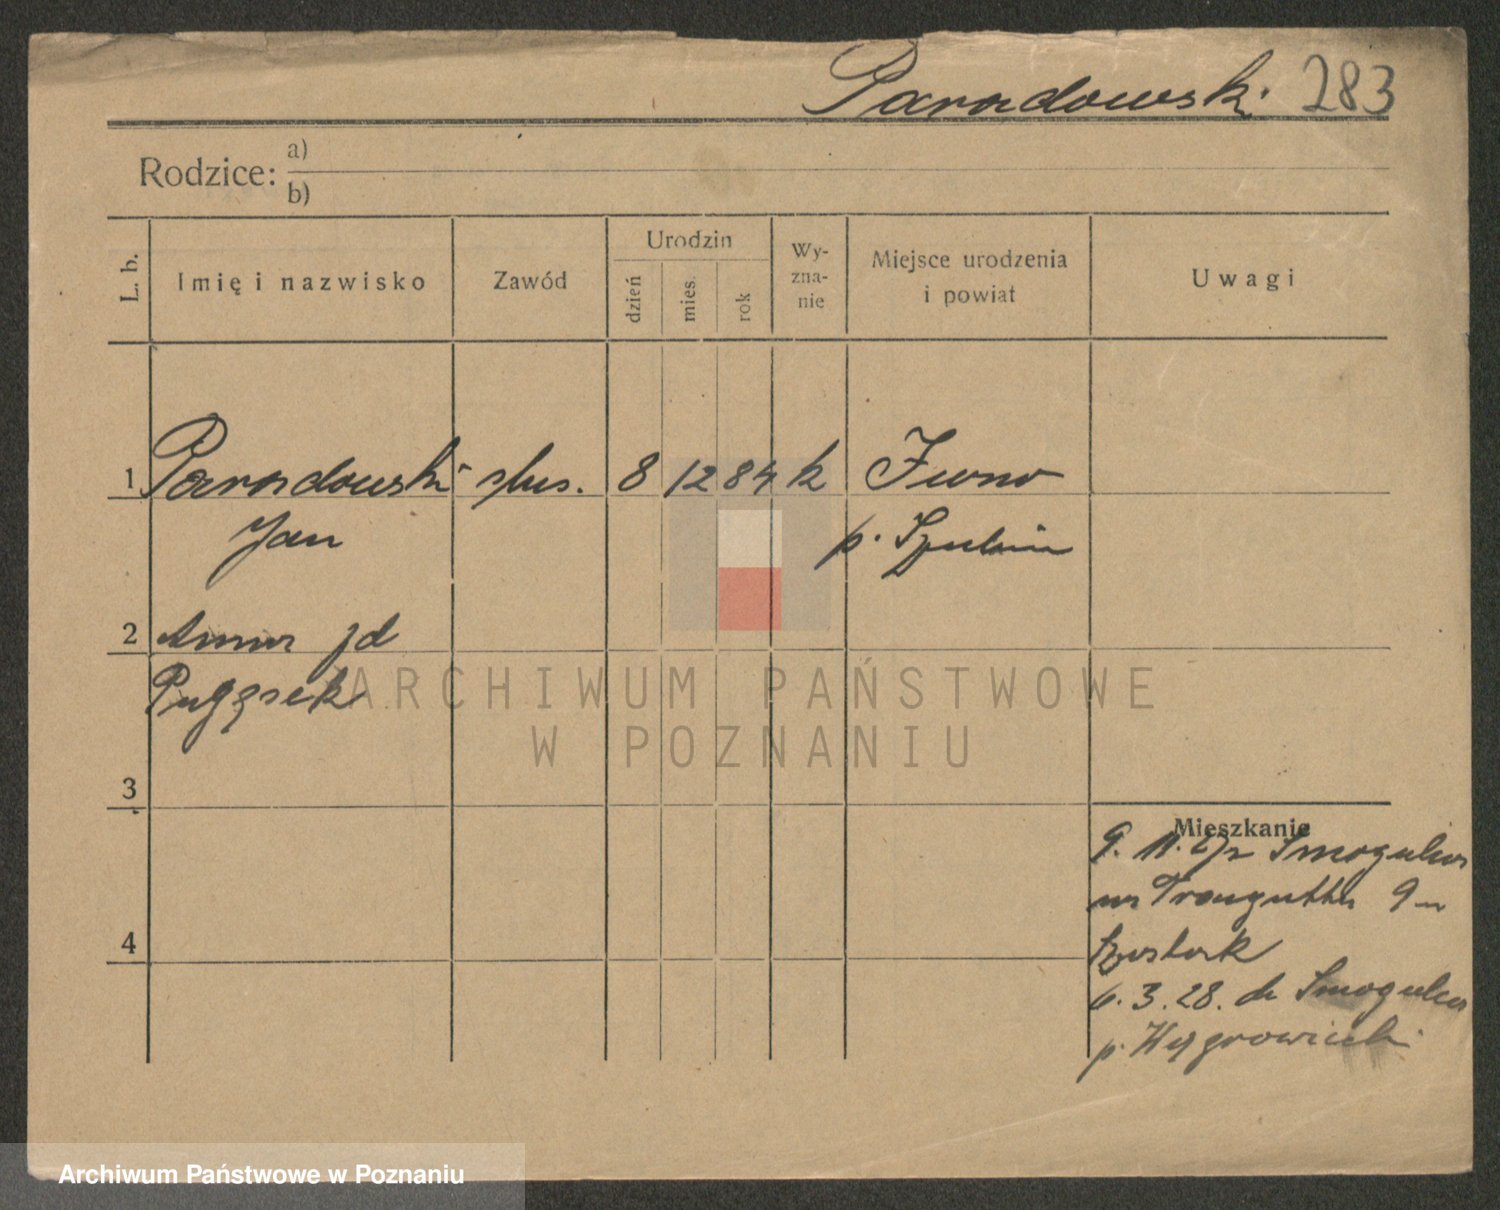 Paradowski 283
Rodzice: a)
b)
L. b.
Imię i nazwisko
Zawód
Urodzin
dzień
mies.
rok
Wy-
zna-
nie
Miejsce urodzenia
i powiat
Uwagi
1 Paradowski ślus. 8 12 84 k Iwno
Jan p. Szubin
2 Anna
3
Mieszkanie
9. 11. 27 z Smogulca
na Traugutta 9 u
4
6. 3. 28. do Smogulca
p. Wągrowiecki
ARCHIWUM PAŃSTWOWE
W POZNANIU
Archiwum Państwowe w Poznaniu